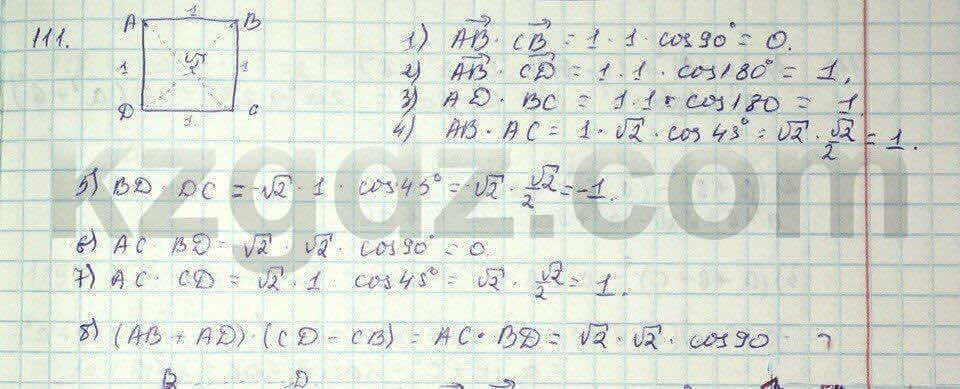 111.
A 1 B
1 √2 1
D 1. C
1) AB · CB = 1 · 1 · cos90° = 0.
2) AB · CD = 1 · 1 · cos180° = 1.
3) AD · BC = 1 · 1 · cos180 = 1
4) AB · AC = 1 · √2 · cos45° = √2 · √2/2 = 1.
5) BD · DC = -√2 · 1 · cos45° = -√2 · √2/2 = -1.
6) AC · BD = √2 · √2 · cos90° = 0.
7) AC · CD = √2 · 1 · cos45° = √2 · √2/2 = 1.
8) (AB + AD) · (CD - CB) = AC · BD = √2 · √2 · cos90
B D
kzgdz.com